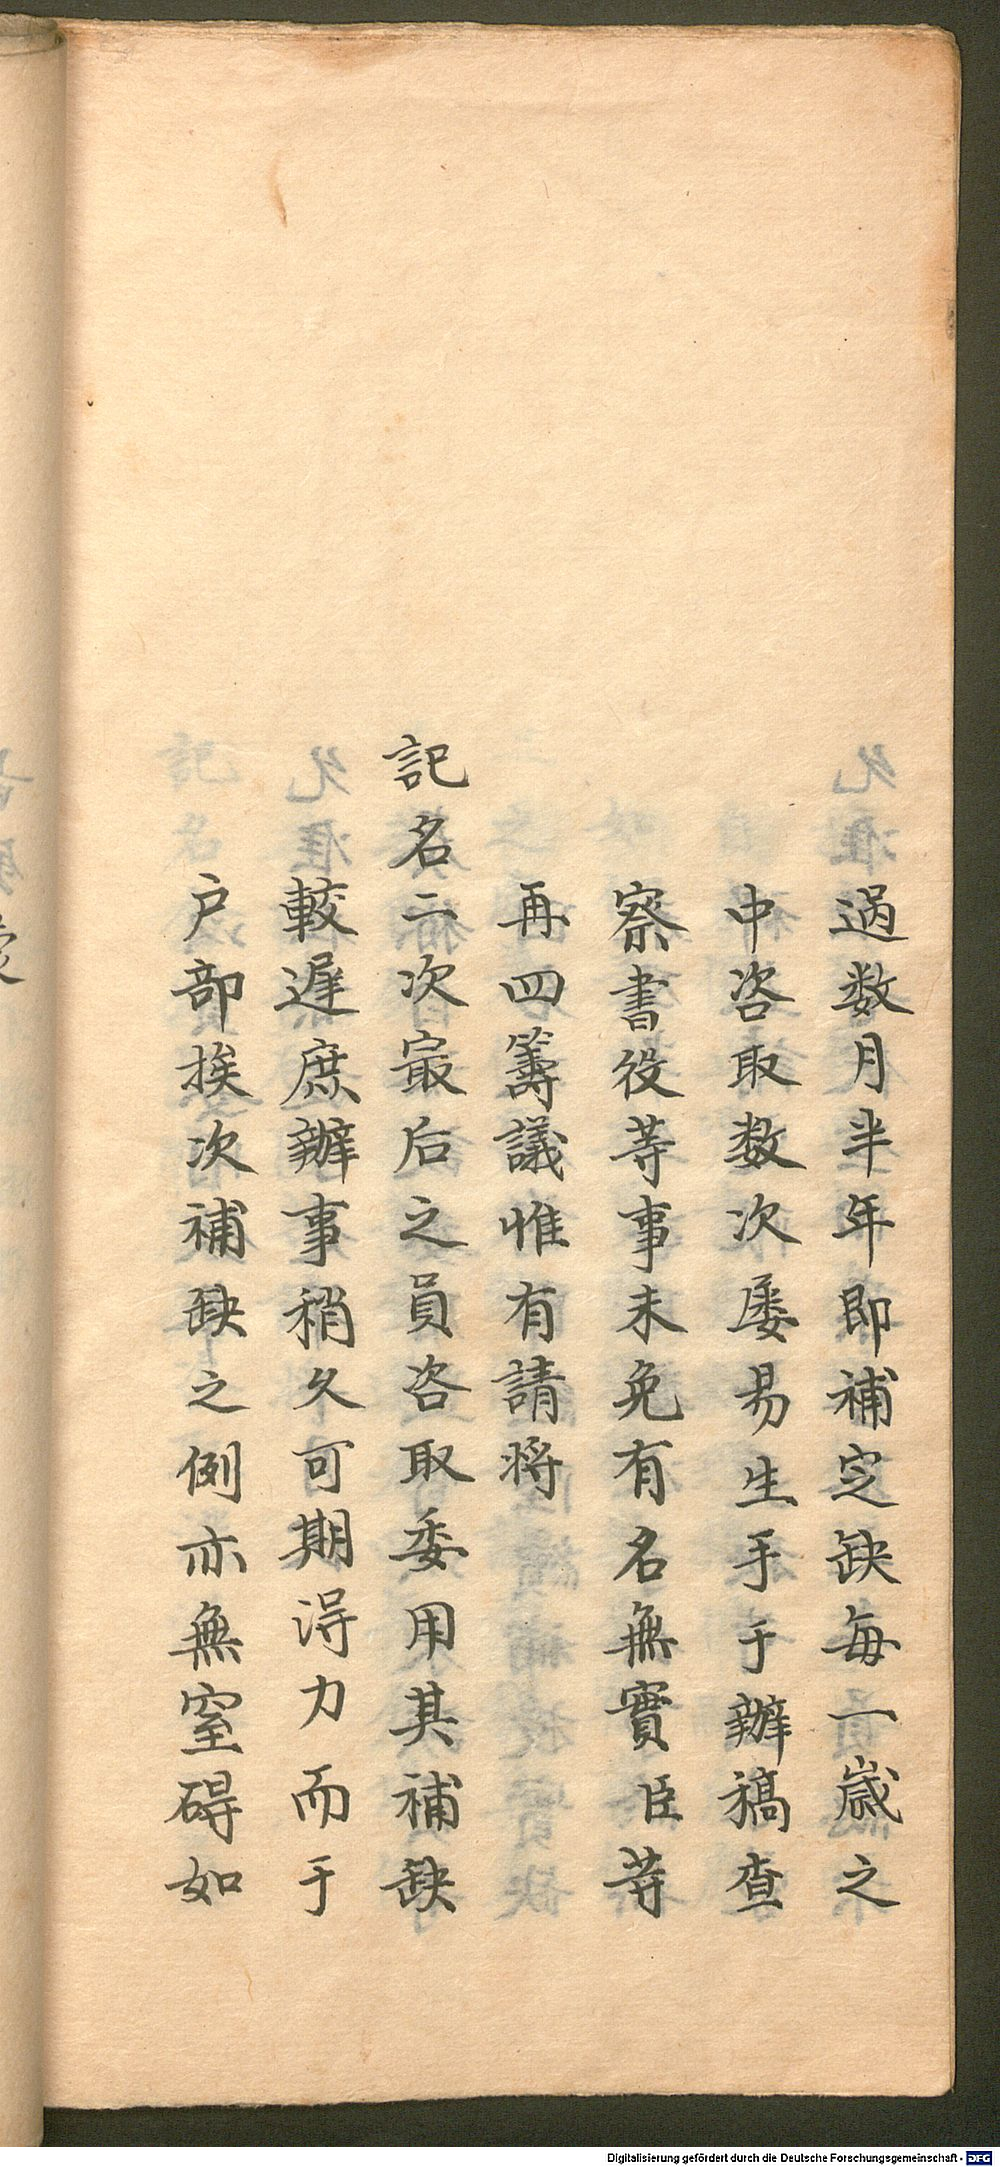 過数月半年即補定缺每一歲之
中咨取数次屡易生手于辦稿查
察書役等事未免有名無實臣等
再四籌議惟有請将
記名二次最后之員咨取委用其補缺
較遲庶辦事稍久可期淂力而于
户部挨次補缺之例亦無窒碍如
Digitalisierung gefördert durch die Deutsche Forschungsgemeinschaft - DFG